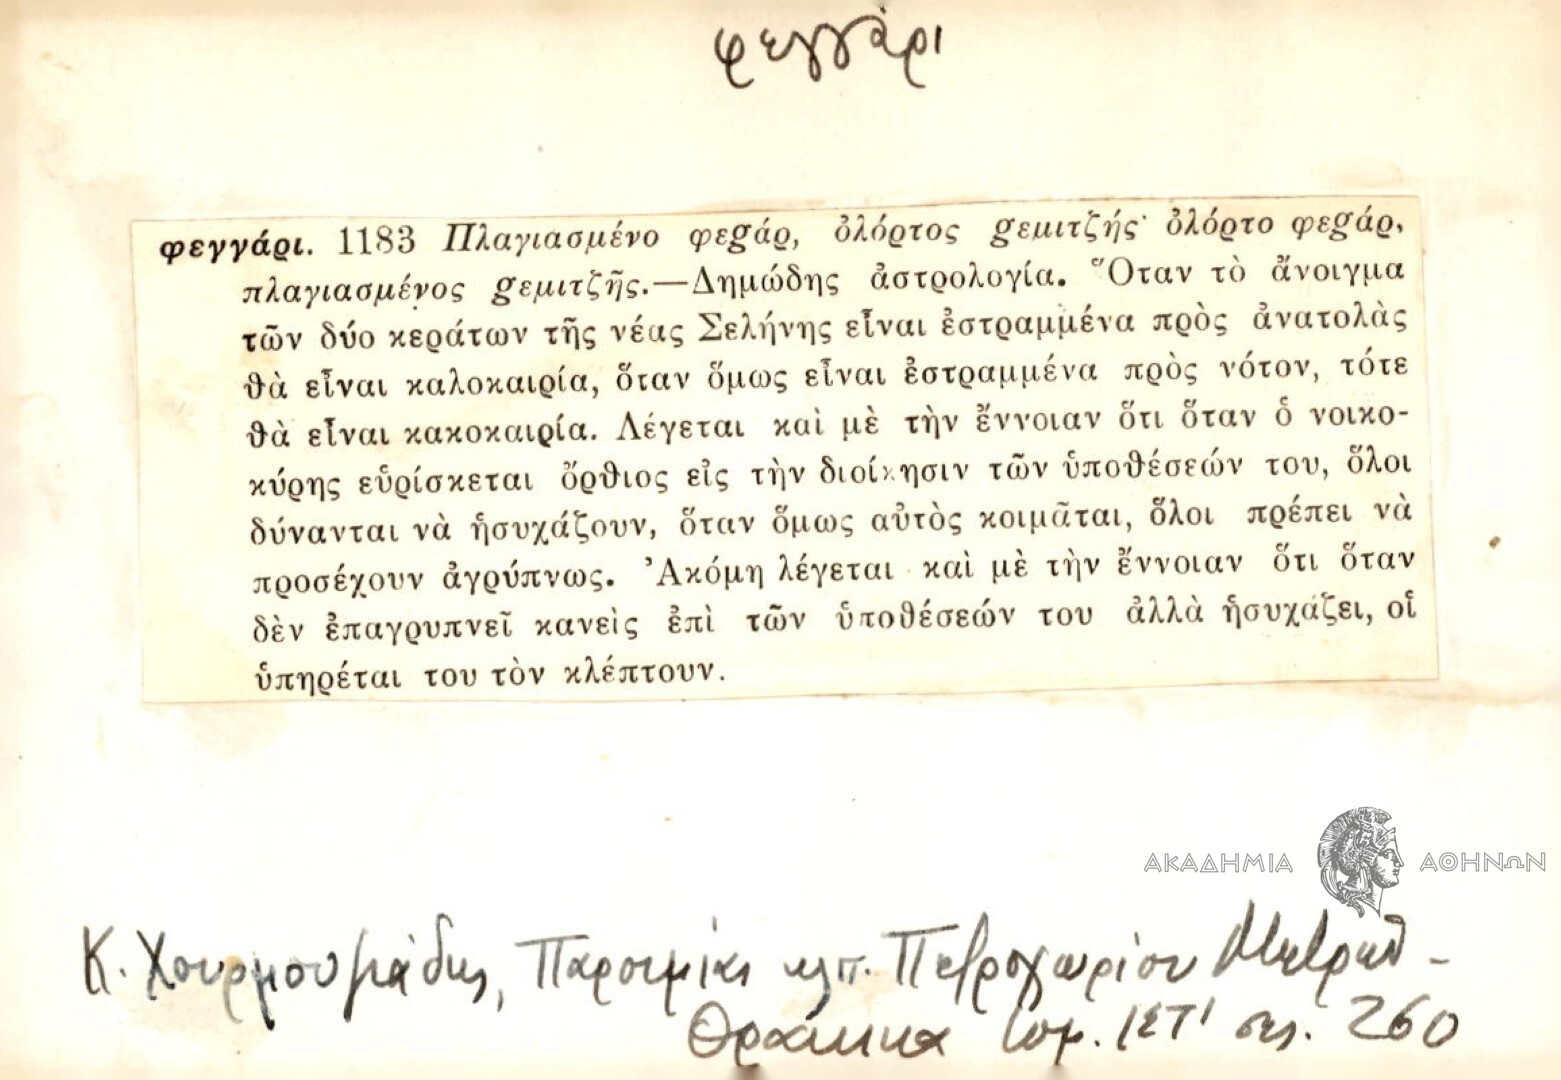 φεγγάρι
φεγγάρι. 1183 Πλαγιασμένο φεgάρ, ὀλόρτος gεμιτζής· ὀλόρτο φεgάρ,
πλαγιασμένος gεμιτζῆς.—Δημώδης ἀστρολογία. Ὅταν τὸ ἄνοιγμα
τῶν δύο κεράτων τῆς νέας Σελήνης εἶναι ἐστραμμένα πρὸς ἀνατολὰς
θὰ εἶναι καλοκαιρία, ὅταν ὅμως εἶναι ἐστραμμένα πρὸς νότον, τότε
θὰ εἶναι κακοκαιρία. Λέγεται καὶ μὲ τὴν ἔννοιαν ὅτι ὅταν ὁ νοικο-
κύρης εὑρίσκεται ὄρθιος εἰς τὴν διοίκησιν τῶν ὑποθέσεών του, ὅλοι
δύνανται νὰ ἡσυχάζουν, ὅταν ὅμως αὐτὸς κοιμᾶται, ὅλοι πρέπει νὰ
προσέχουν ἀγρύπνως. Ἀκόμη λέγεται καὶ μὲ τὴν ἔννοιαν ὅτι ὅταν
δὲν ἐπαγρυπνεῖ κανεὶς ἐπὶ τῶν ὑποθέσεών του ἀλλὰ ἡσυχάζει, οἱ
ὑπηρέται του τὸν κλέπτουν.
ΑΚΑΔΗΜΙΑ ΑΘΗΝΩΝ
Κ. Χουρμουζιάδης, Παροιμίαι κλπ. Πετροχωρίου Μετρῶν -
Θρακικα τομ. ΙΣΤ' σελ. 260